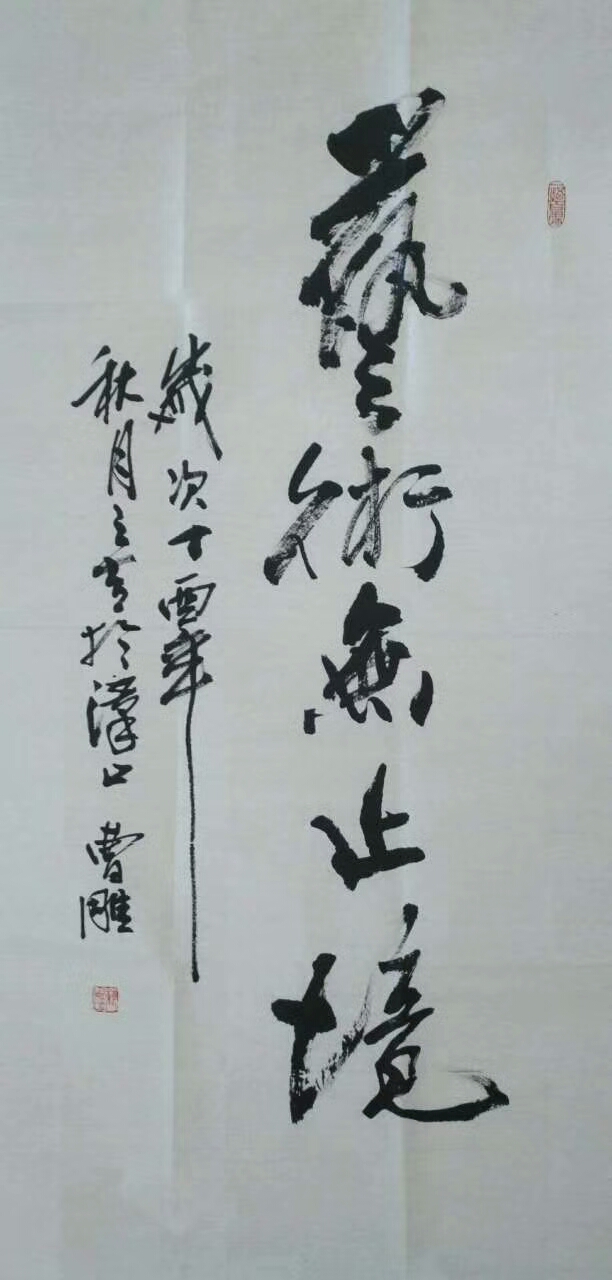 藝術無止境
歲次丁酉年
秋月之 於漳口 曹雕